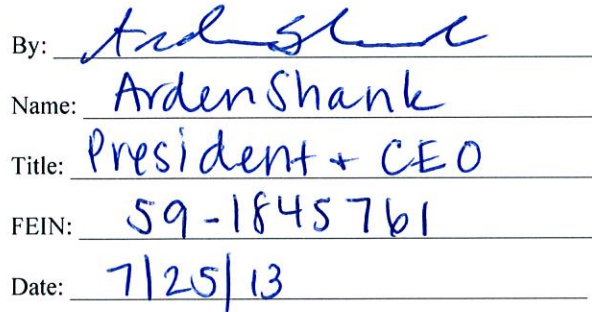 By: Arden Shank
Name: Arden Shank
Title: President + CEO
FEIN: 59-1845761
Date: 7/25/13